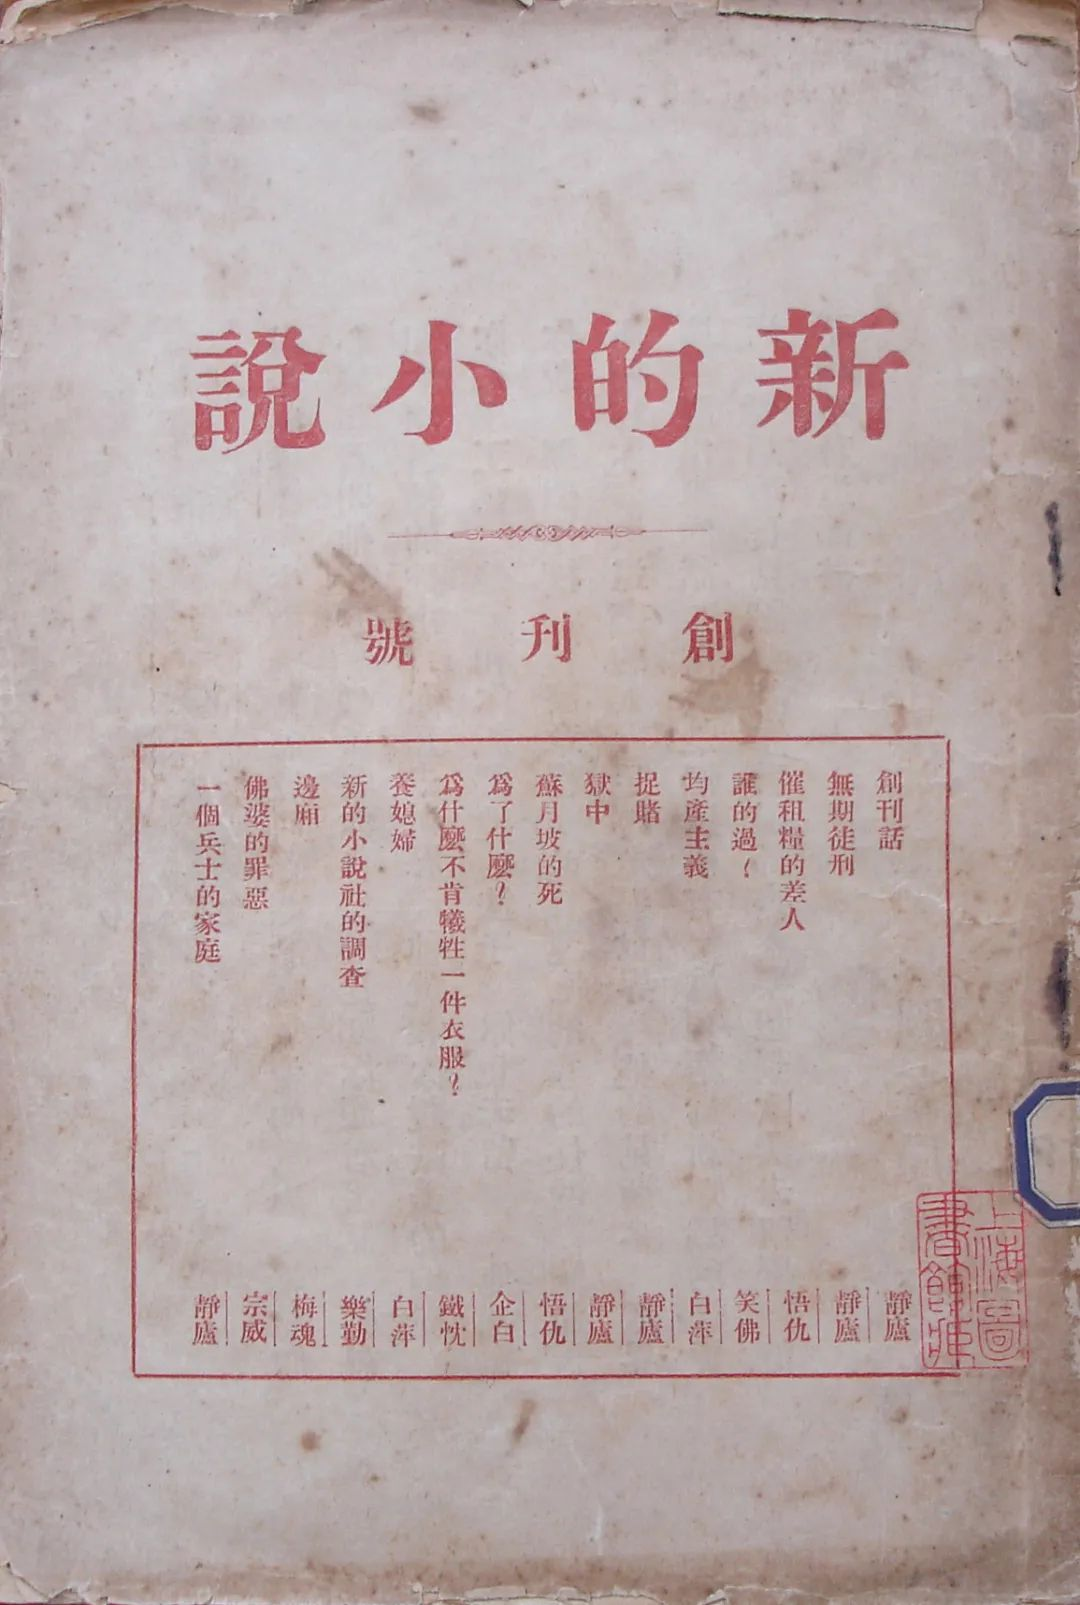 新的小說
創刊號
創刊話 靜廬
無期徒刑 靜廬
催租糧的差人 悟仇
誰的過？ 笑佛
均產主義 白萍
捉賭 靜廬
獄中 靜廬
蘇月坡的死 悟仇
爲了什麼？ 企白
爲什麼不肯犧牲一件衣服？ 鐵忱
養媳婦 白萍
新的小說社的調查 樂勤
邊廂 梅魂
佛婆的罪惡 宗威
一個兵士的家庭 靜廬
上海圖書館藏